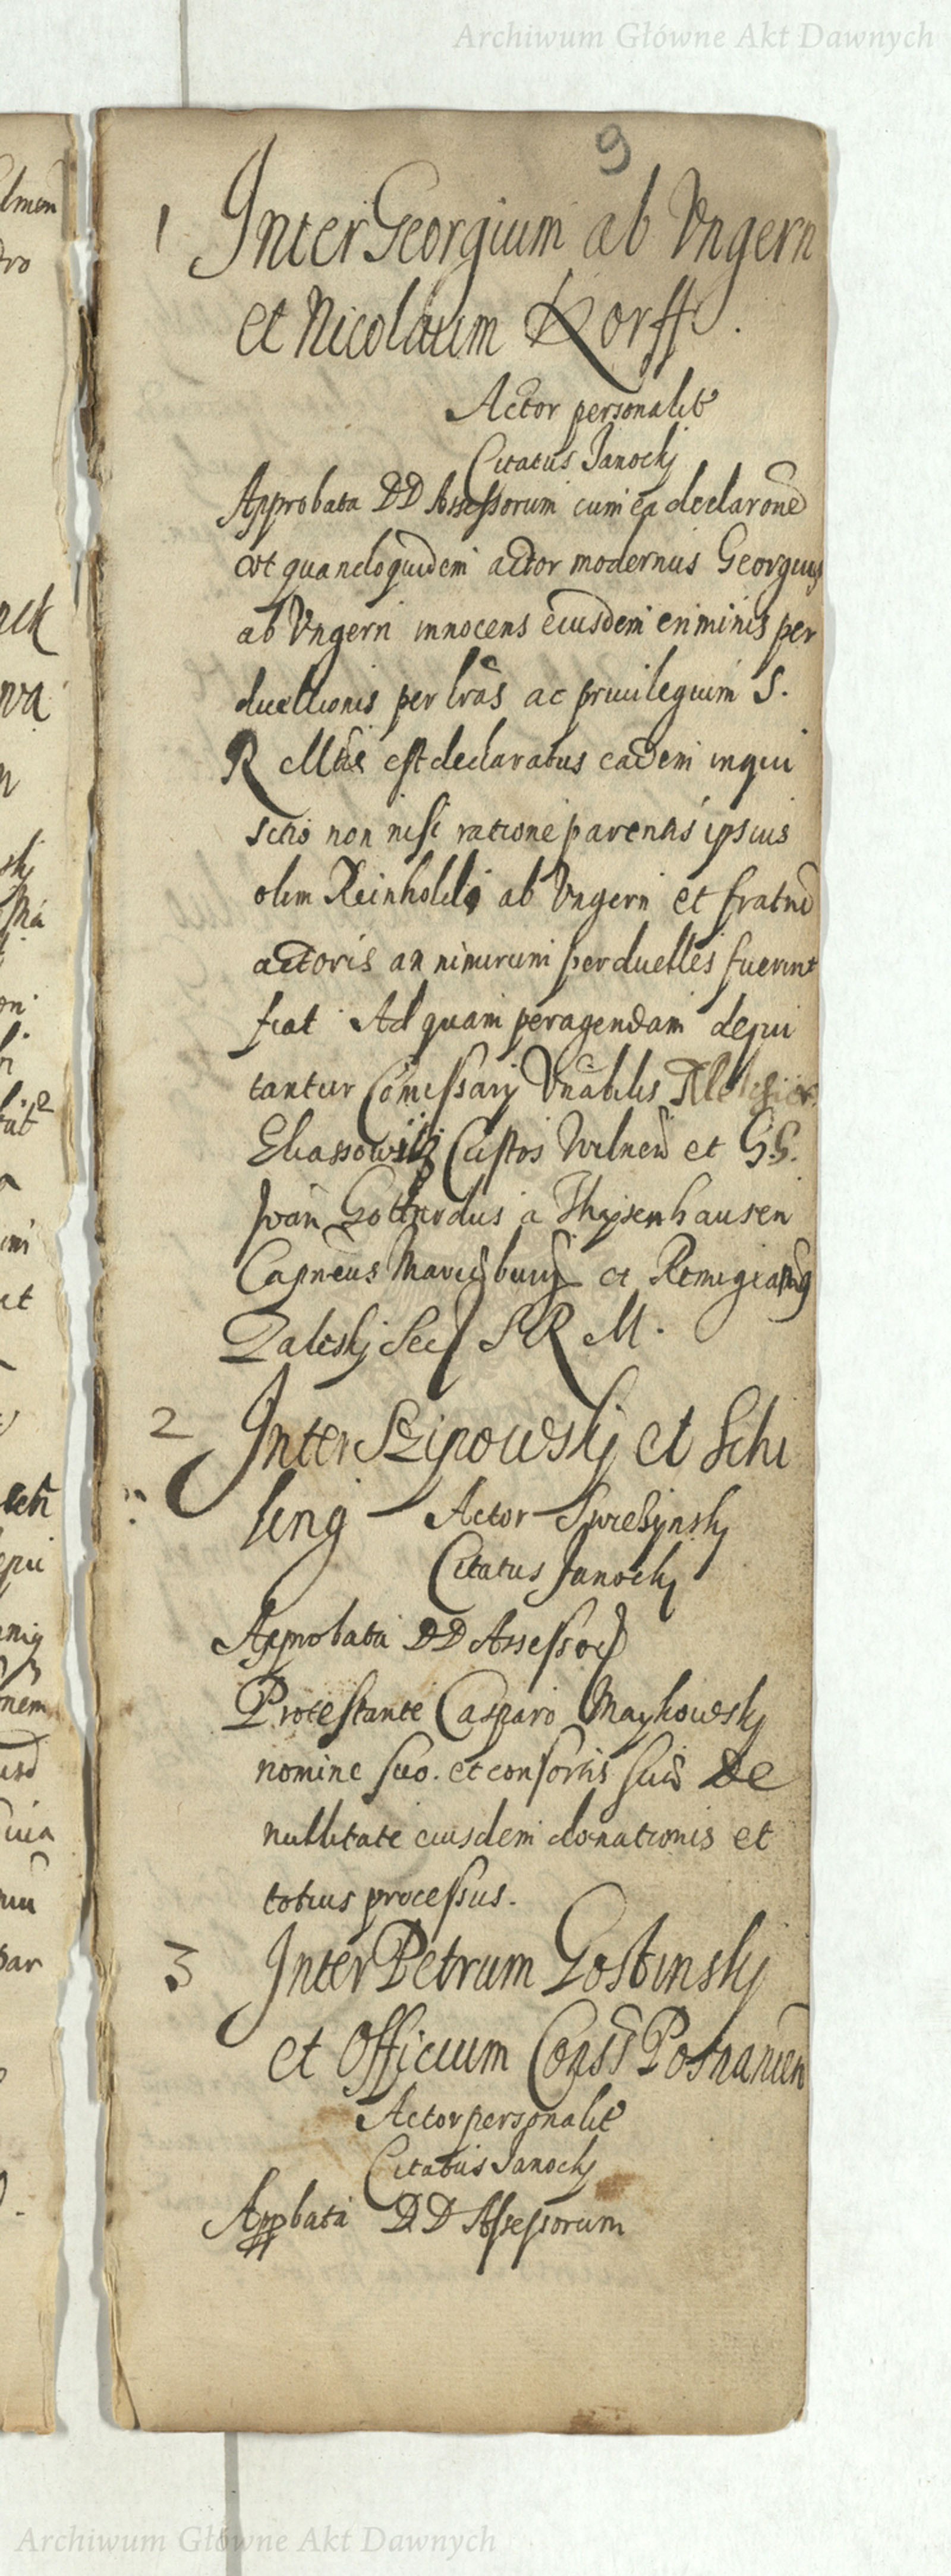 Archiwum Główne Akt Dawnych
9
1 Inter Georgium ab Vngern
et Nicolaum Korff.
Actor personalit
Citatus Janockj
Approbata DD Assessorum cum ea declarone
vt quandoquidem actor modernus Georgius
ab Vngern innocens eiusdem criminis per
duellionis per lras ac priuilegium S.
R Mtis est declaratus eadem inqui
sitio non nisi ratione parentis ipsius
olim Reinholdi ab Vngern et fratrū
actoris an nimirum perduelles fuerint
fiat Ad quam peragendam depu
tantur Comissarij Vnābilis
Eliassowitz Custos Wilneñ et GG.
Joan Gothardus a Thysenhausen
Capneus Marieburg et Remigianus
Zaleskj Sec S R M.
2 Inter Szipowskj et Schi
ling Actor Swiesynskj
Citatus Janockj
Approbata DD Assessor
Protestante Casparo Maykowskj
nomine suo. et consortis suæ De
nullitate eiusdem donationis et
totius processus.
3 Inter Petrum Gostinskj
et Officium Conss Posnanien
Actor personalit
Citatus Janockj
Appbata DD Assessorum
Archiwum Główne Akt Dawnych